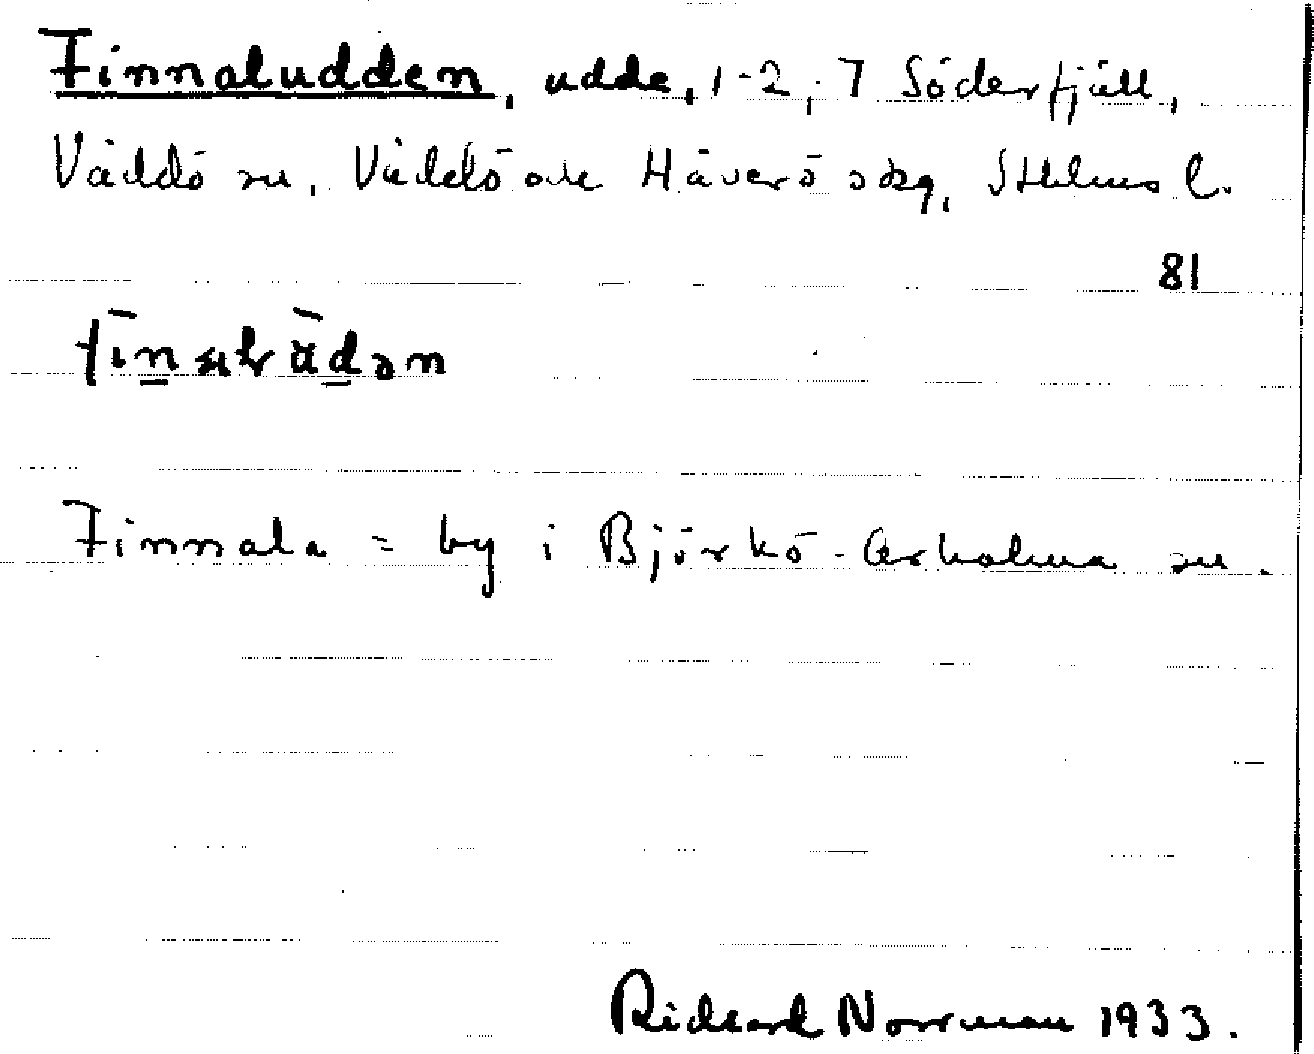 Finnaludden, udde, 1-2, 7 Söderfjäll,
Väddö sn, Väddö och Häverö skg, Sthlms l.
81
Finnala = by i Björkö-Arholma sn.
Rickard Norrman 1933.